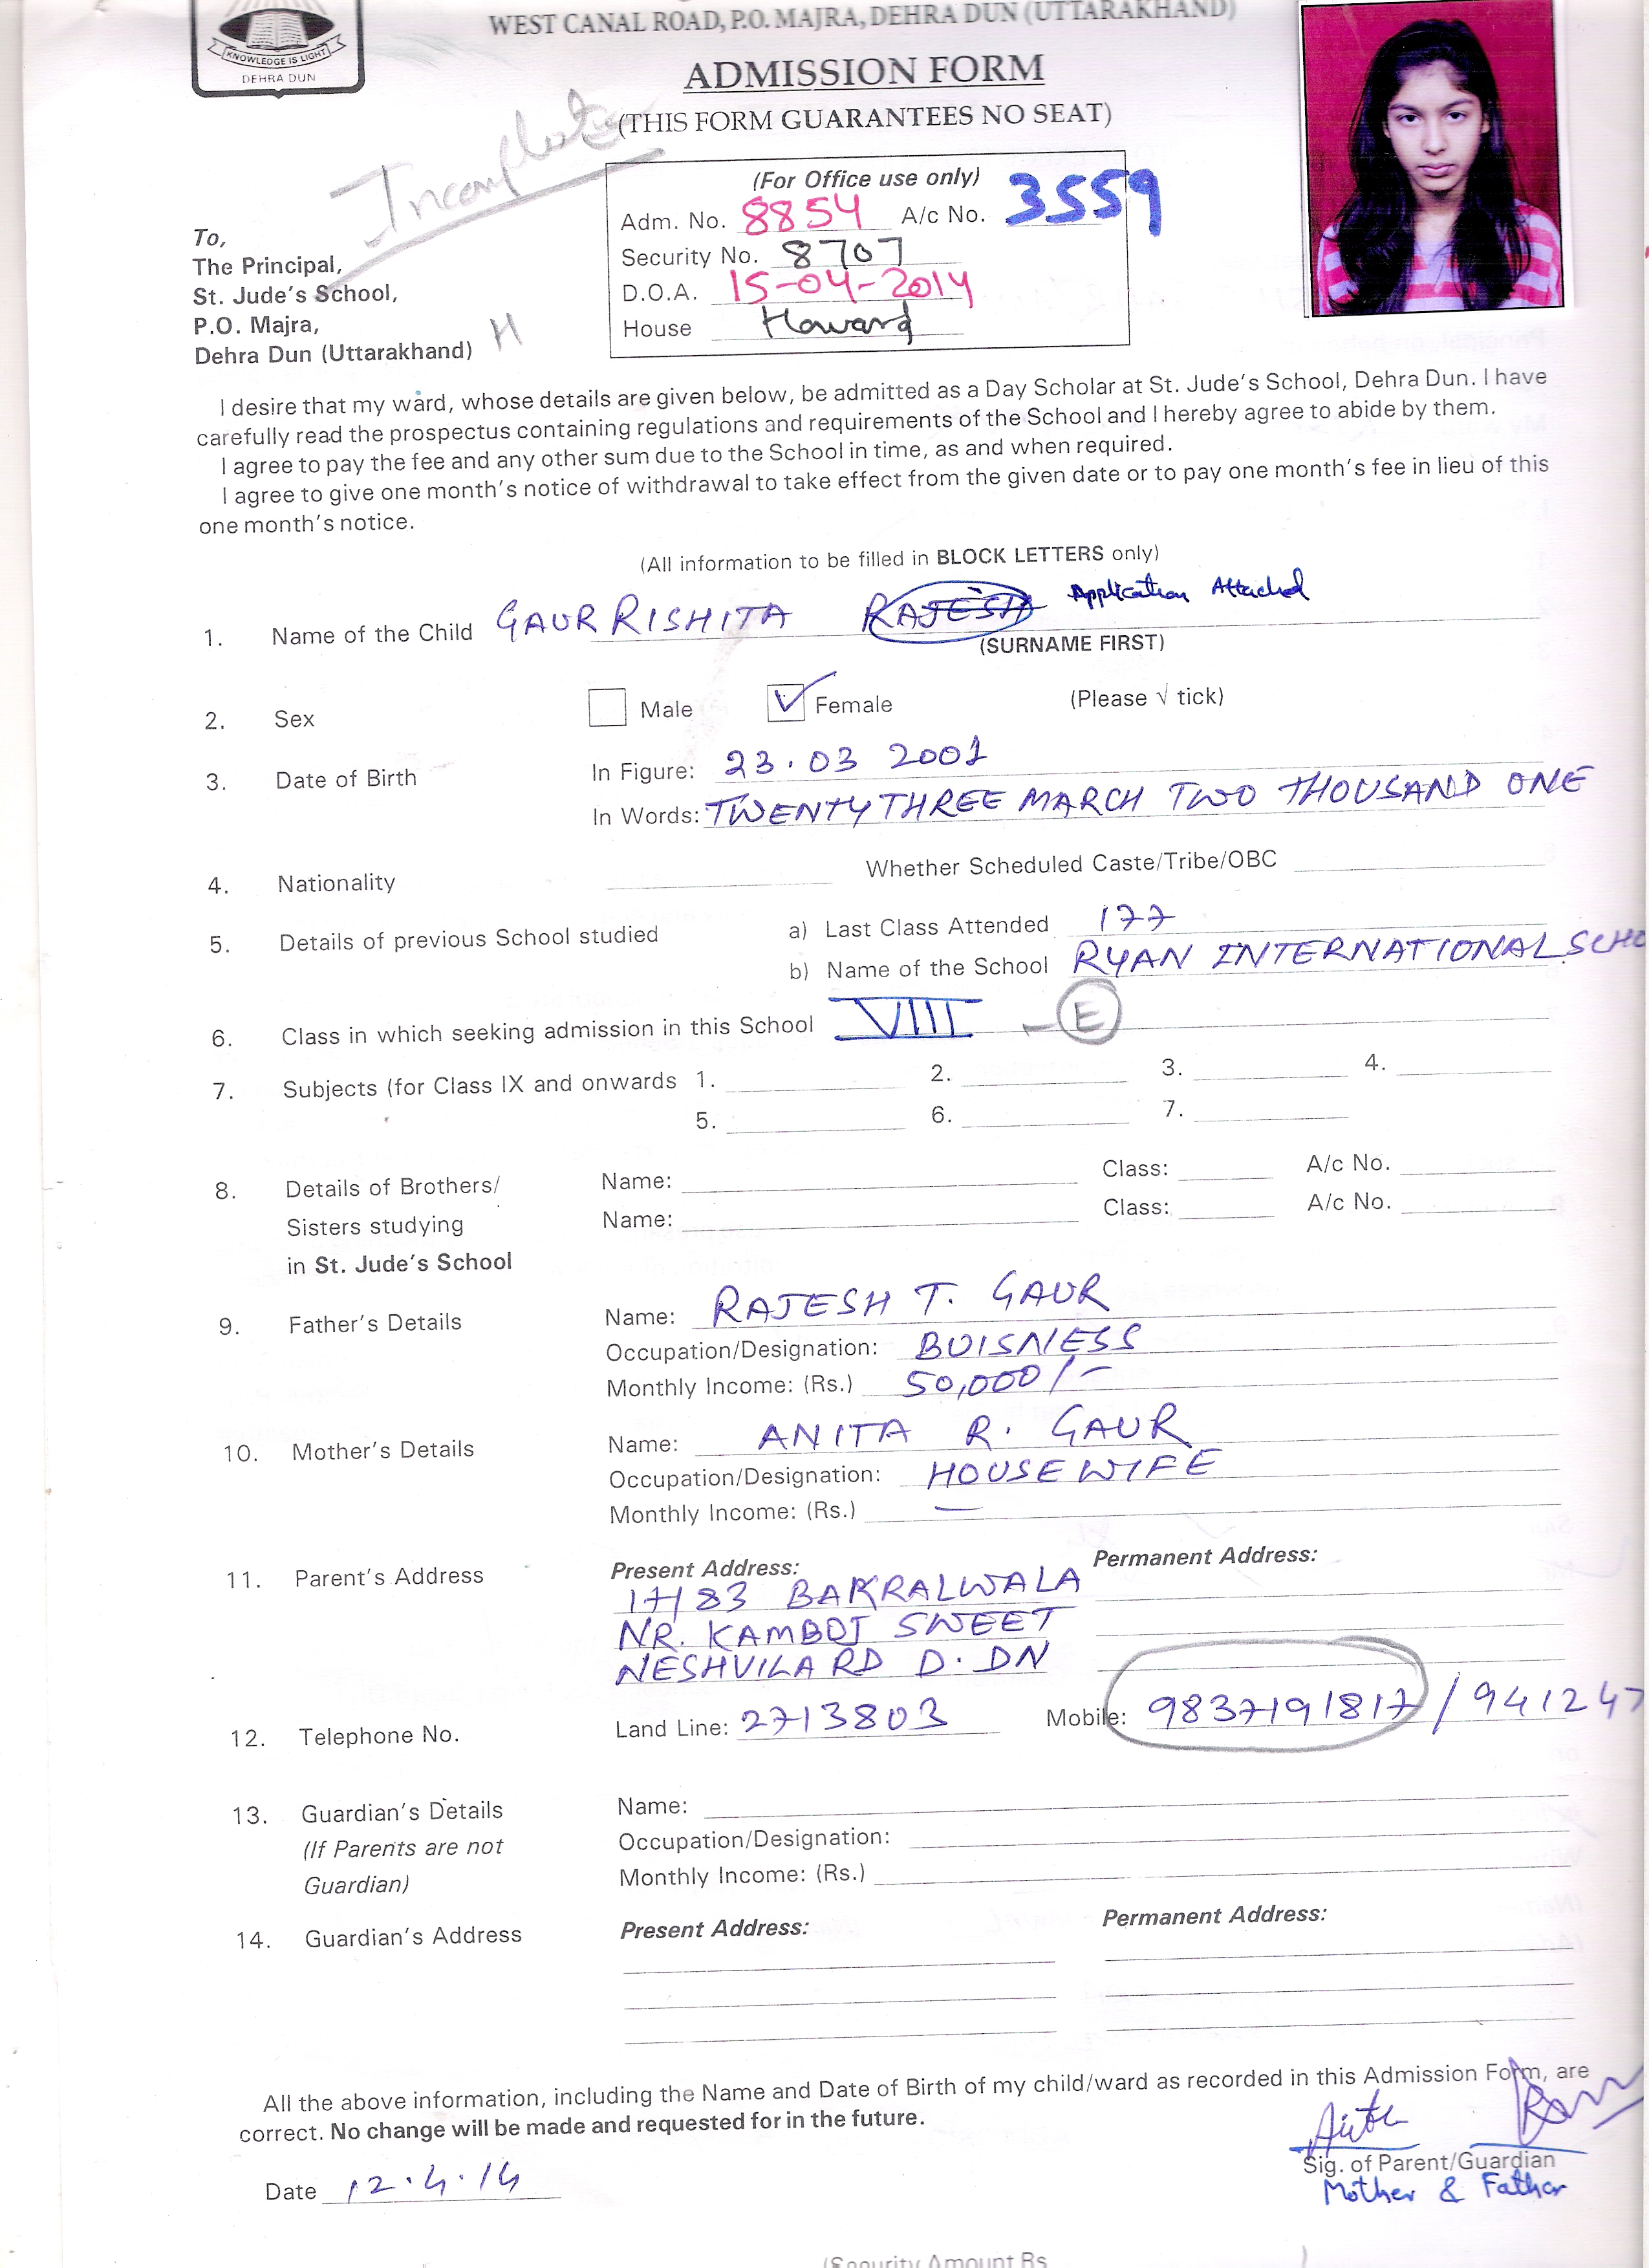 WEST CANAL ROAD, P.O. MAJRA, DEHRA DUN (UTTARAKHAND)
KNOWLEDGE IS LIGHT
DEHRA DUN
ADMISSION FORM
(THIS FORM GUARANTEES NO SEAT)
Incomplete
(For Office use only)
Adm. No. 8854 A/c No. 3559
Security No. 8707
D.O.A. 15-04-2014
House Howard
To,
The Principal,
St. Jude's School,
P.O. Majra,
Dehra Dun (Uttarakhand) H
I desire that my ward, whose details are given below, be admitted as a Day Scholar at St. Jude's School, Dehra Dun. I have
carefully read the prospectus containing regulations and requirements of the School and I hereby agree to abide by them.
I agree to pay the fee and any other sum due to the School in time, as and when required.
I agree to give one month's notice of withdrawal to take effect from the given date or to pay one month's fee in lieu of this
one month's notice.
(All information to be filled in BLOCK LETTERS only)
1. Name of the Child GAUR RISHITA RAJESH Application Attached
(SURNAME FIRST)
2. Sex Male Female (Please √ tick)
3. Date of Birth In Figure: 23.03 2001
In Words: TWENTY THREE MARCH TWO THOUSAND ONE
4. Nationality Whether Scheduled Caste/Tribe/OBC
5. Details of previous School studied a) Last Class Attended 177
b) Name of the School RYAN INTERNATIONAL SCHO
6. Class in which seeking admission in this School VIII - E
7. Subjects (for Class IX and onwards 1. 2. 3. 4.
5. 6. 7.
8. Details of Brothers/ Name: Class: A/c No.
Sisters studying Name: Class: A/c No.
in St. Jude's School
9. Father's Details Name: RAJESH T. GAUR
Occupation/Designation: BUISNESS
Monthly Income: (Rs.) 50,000/-
10. Mother's Details Name: ANITA R. GAUR
Occupation/Designation: HOUSE WIFE
Monthly Income: (Rs.) —
11. Parent's Address Present Address: Permanent Address:
17/83 BAKRALWALA
NR. KAMBOJ SWEET
NESHVILA RD D.DN
12. Telephone No. Land Line: 2713803 Mobile: 9837191817 / 941247
13. Guardian's Details Name:
(If Parents are not Occupation/Designation:
Guardian) Monthly Income: (Rs.)
14. Guardian's Address Present Address: Permanent Address:
All the above information, including the Name and Date of Birth of my child/ward as recorded in this Admission Form, are
correct. No change will be made and requested for in the future.
Sig. of Parent/Guardian
Date 12.4.14 Mother & Father
(Security Amount Rs